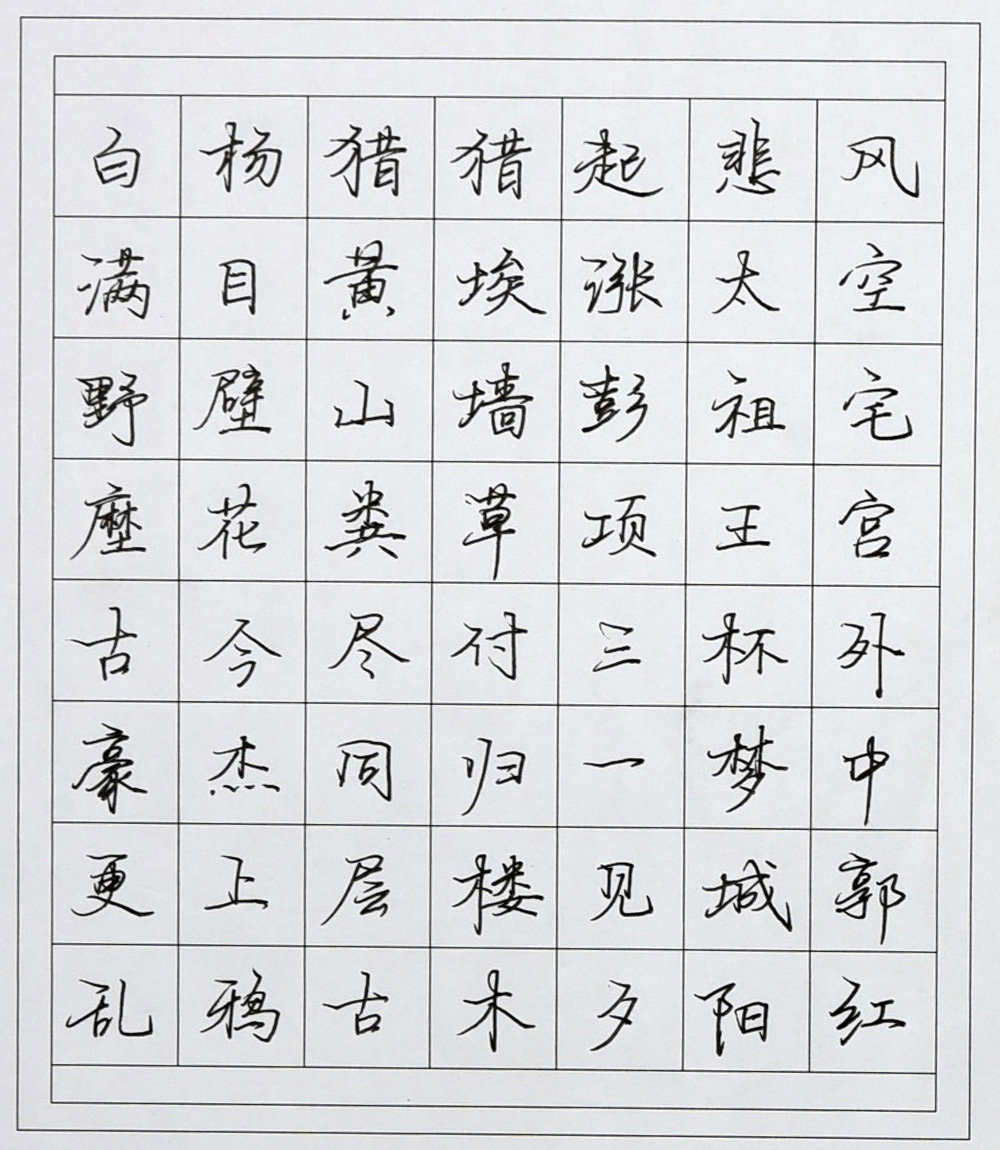 白杨猎猎起悲风
满目黄埃涨太空
野壁山墙彭祖宅
塵花粪草项王宫
古今尽付三杯外
豪杰同归一梦中
更上层楼见城郭
乱鸦古木夕阳红